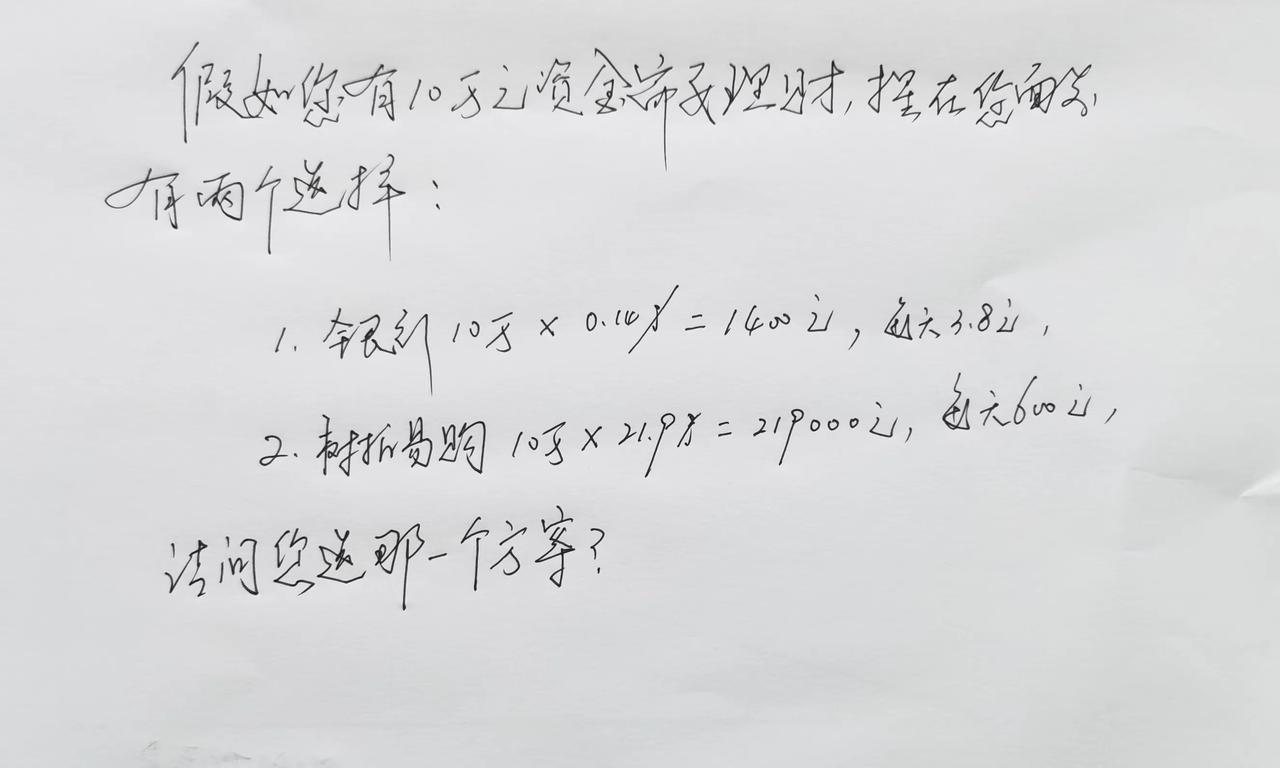 假如您有10万元资金需要理财,摆在您面前
有两个选择:
1. 银行 10万 × 0.14% = 1400元, 每天3.8元,
2. 易购 10万 × 21.9% = 219000元, 每天600元,
请问您选那一个方案?